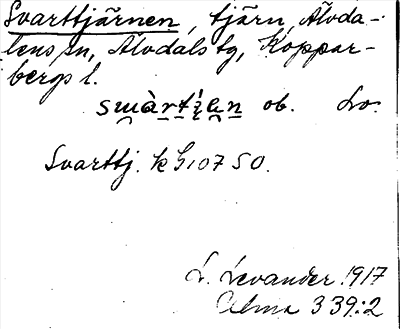 Svarttjärnen, tjärn, Älvda-
lens sn, Älvdals tg, Koppar-
bergs l.
swàrtįen ob. Lo.
Svarttj. k G107 SO.
L. Levander 1917
Alma 339:2